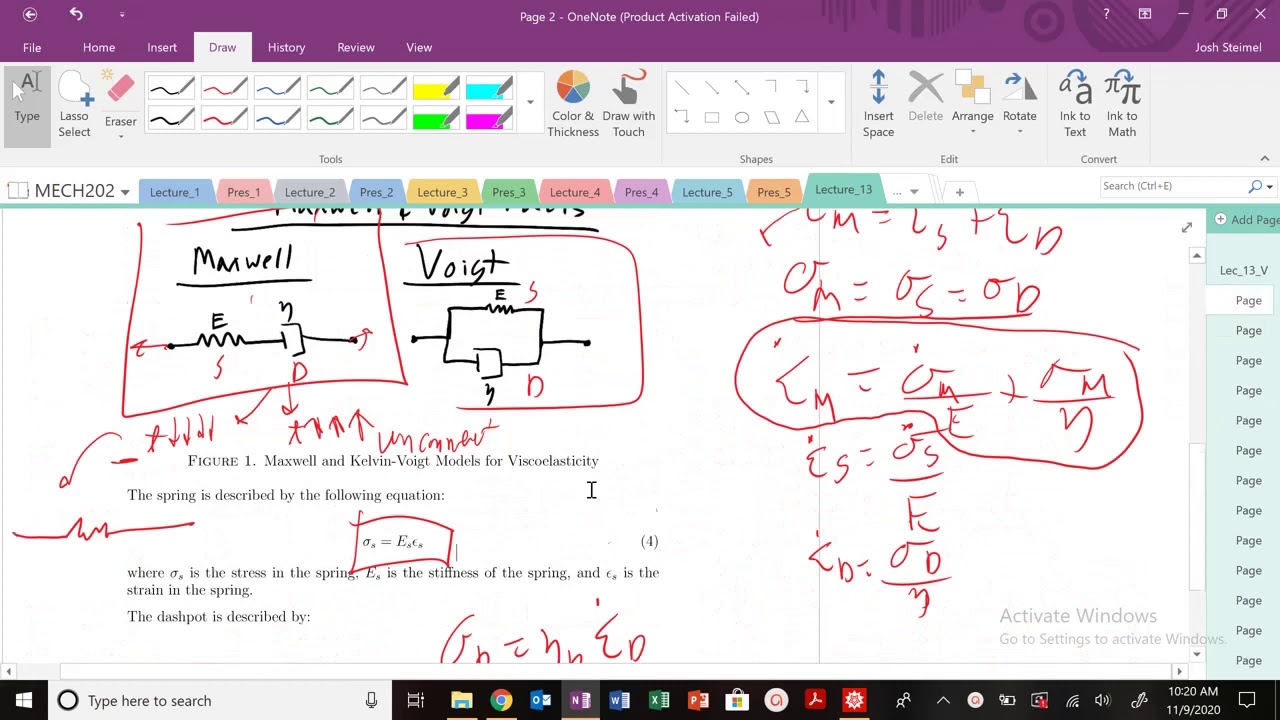 Page 2 - OneNote (Product Activation Failed)
?
File Home Insert Draw History Review View
Josh Steimel
Type
Lasso Select
Eraser
Color & Thickness
Draw with Touch
Insert Space
Delete
Arrange
Rotate
Ink to Text
Ink to Math
Tools
Shapes
Edit
Convert
MECH202
Lecture_1 Pres_1 Lecture_2 Pres_2 Lecture_3 Pres_3 Lecture_4 Pres_4 Lecture_5 Pres_5 Lecture_13 ...
Search (Ctrl+E)
Add Page
Lec_13_V
Page
Page
Page
Page
Page
Page
Page
Page
Page
Page
Page
Page
Page
Maxwell & Voigt
Maxwell
Voigt
E η
S D
E S
η D
t↓↓↓↓ t↑↑↑↑
FIGURE 1. Maxwell and Kelvin-Voigt Models for Viscoelasticity
The spring is described by the following equation:
σs = Esϵs (4)
where σs is the stress in the spring, Es is the stiffness of the spring, and ϵs is the
strain in the spring.
The dashpot is described by:
σD = ηD ε̇D
εM = εS + εD
σM = σS = σD
ε̇M = σ̇M/E + σM/η
ε̇S = σ̇S/E
ε̇D = σD/η
Activate Windows
Go to Settings to activate Windows.
Type here to search
10:20 AM
11/9/2020